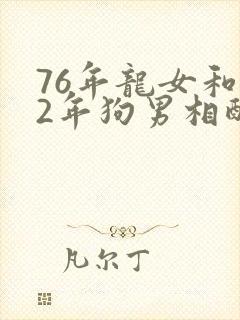 76年龍女和
2年狗男相配
凡尔丁